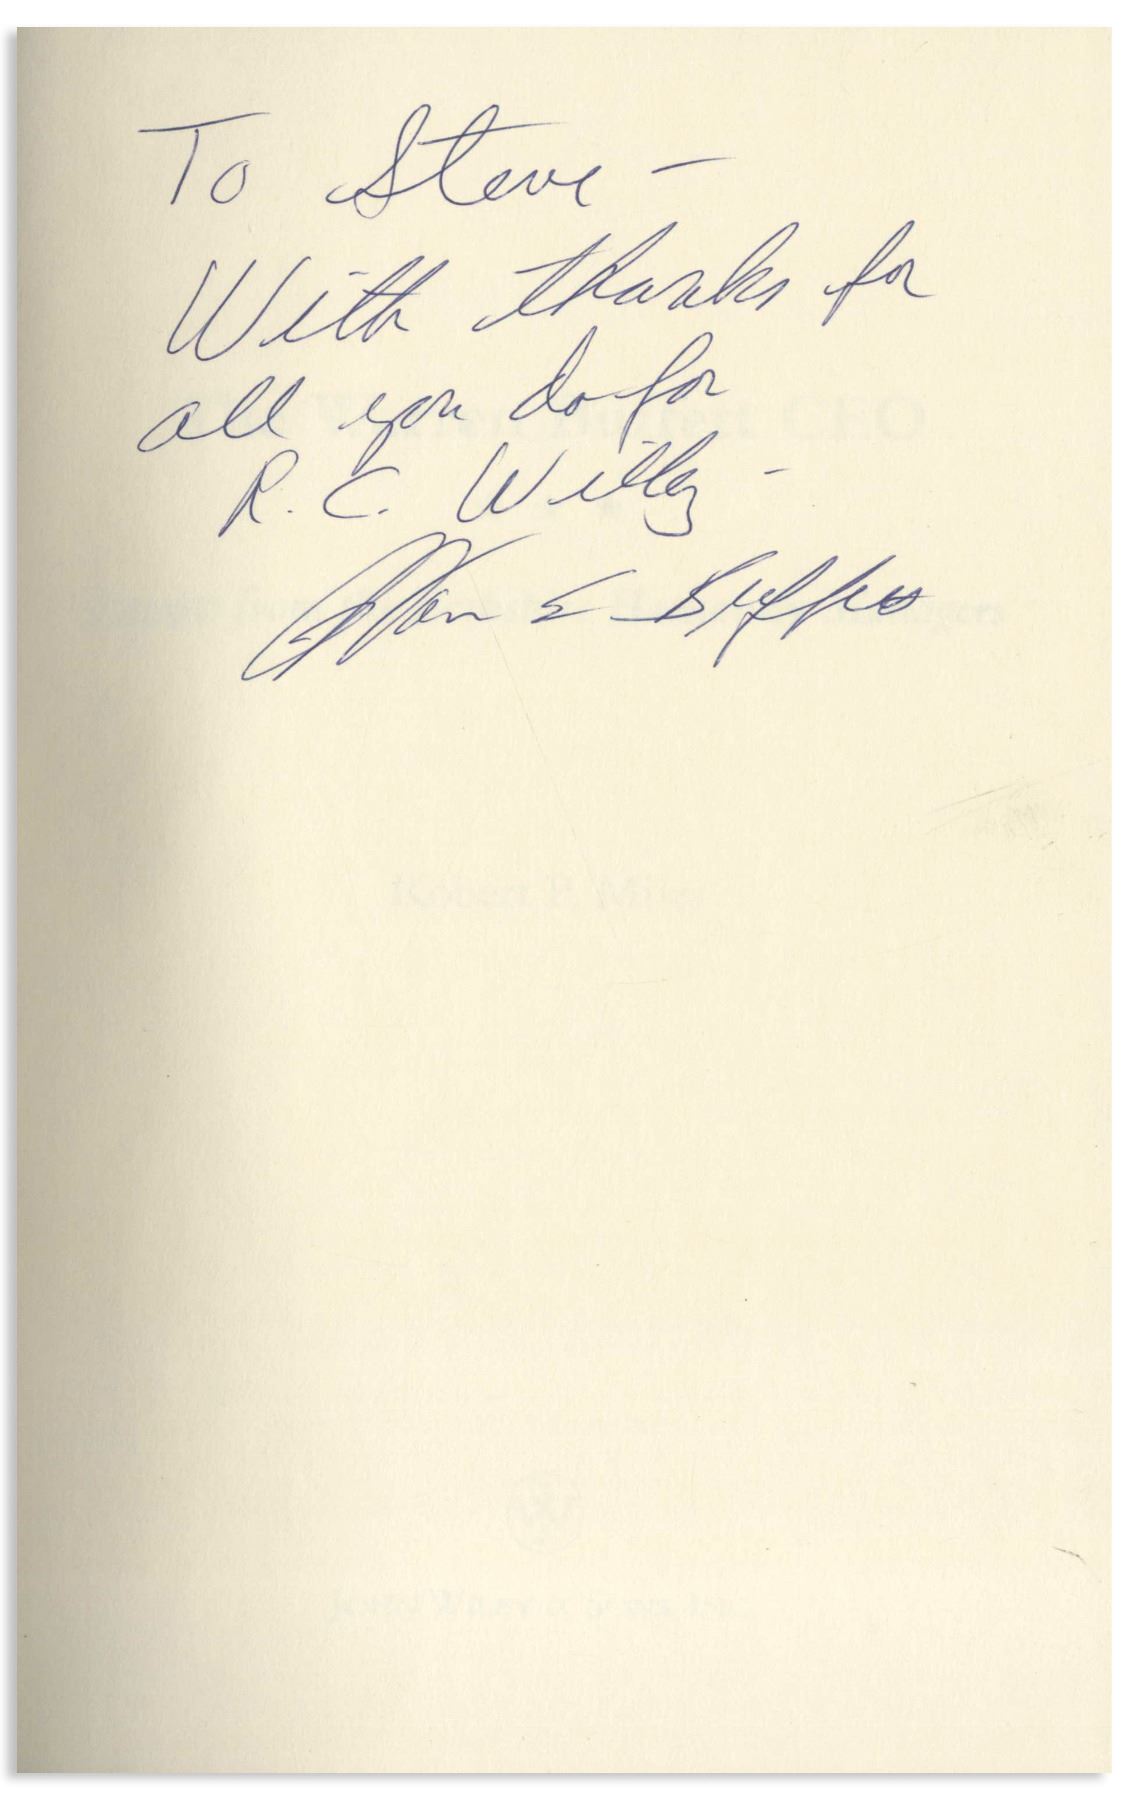 To Steve –
With thanks for
all you do for
R. C. Willey –
Warren E Buffett
Warren Buffett CEO
Managers
Robert P. Miles
John Wiley & Sons, Inc.